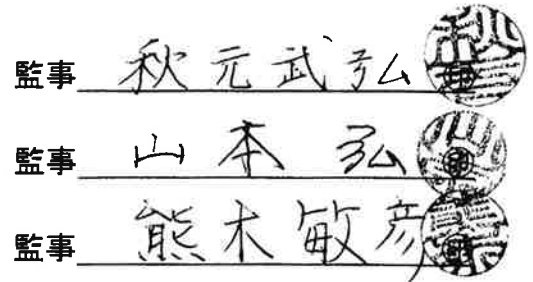 監事 秋元武弘 ㊞
監事 山本弘 ㊞
監事 熊木敏彦 ㊞